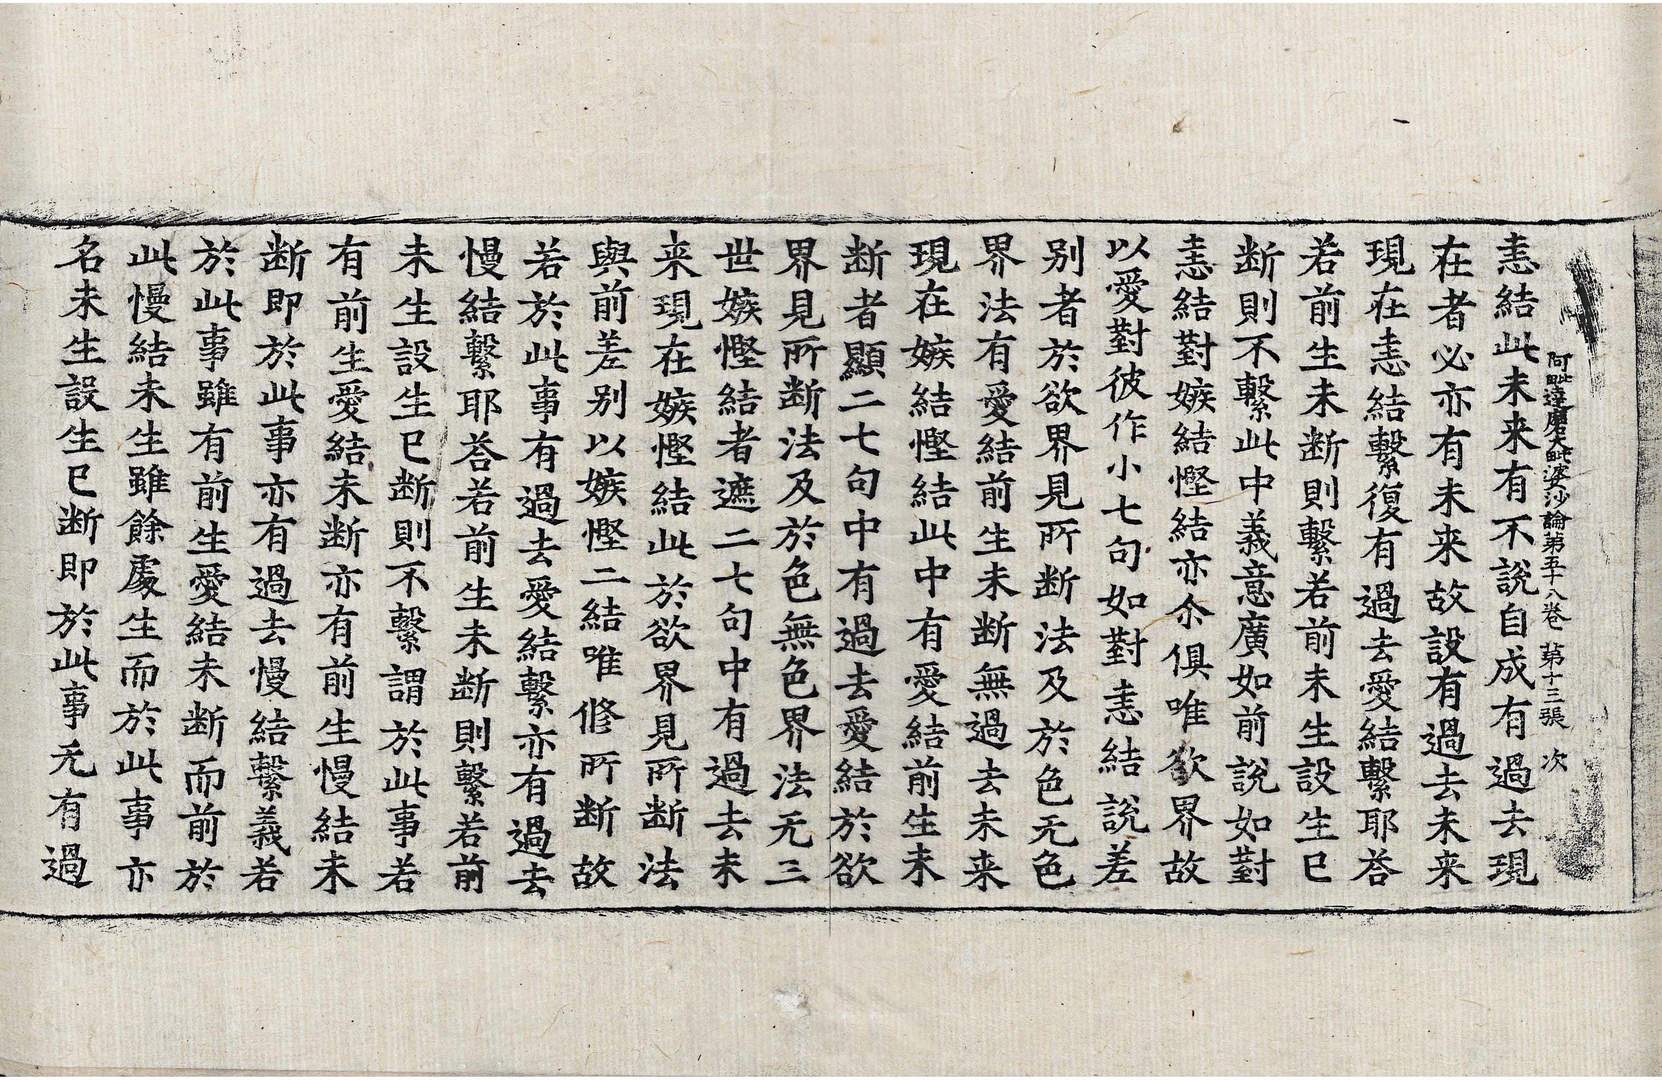 阿毗達磨大毗婆沙論第五十八卷 第十三張 次
恚結此未来有不說自成有過去現
在者必亦有未来故設有過去未来
現在恚結繫復有過去愛結繫耶荅
若前生未断則繫若前未生設生已
断則不繫此中義意廣如前說如對
恚結對嫉結慳結亦尒俱唯欲界故
以愛對彼作小七句如對恚結說差
别者於欲界見所断法及於色无色
界法有愛結前生未断無過去未来
現在嫉結慳結此中有愛結前生未
断者顯二七句中有過去愛結於欲
界見所断法及於色無色界法无三
世嫉慳結者遮二七句中有過去未
来現在嫉慳結此於欲界見所断法
與前差别以嫉慳二結唯修所断故
若於此事有過去愛結繫亦有過去
慢結繫耶荅若前生未断則繫若前
未生設生已断則不繫謂於此事若
有前生愛結未断亦有前生慢結未
断即於此事亦有過去慢結繫義若
於此事雖有前生愛結未断而前於
此慢結未生雖餘處生而於此事亦
名未生設生已断即於此事无有過